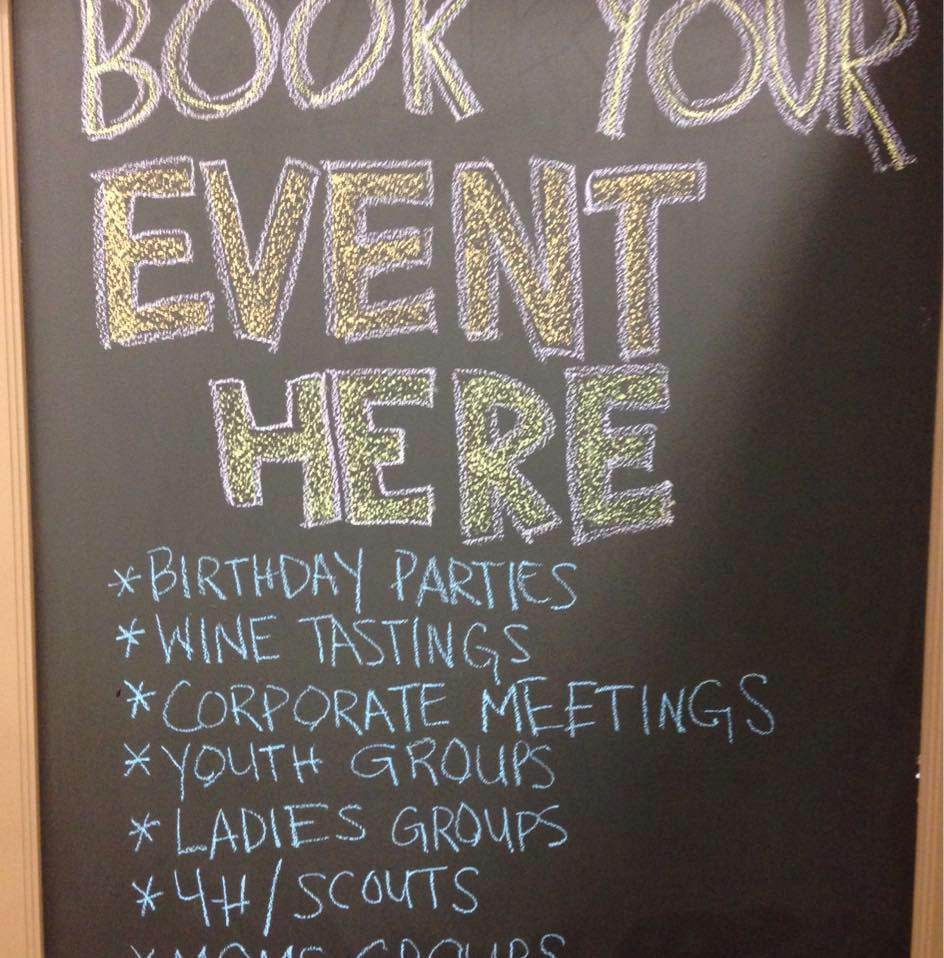 BOOK YOUR
EVENT
HERE
*BIRTHDAY PARTIES
*WINE TASTINGS
*CORPORATE MEETINGS
*YOUTH GROUPS
*LADIES GROUPS
*4H/SCOUTS
*MOMS GROUPS